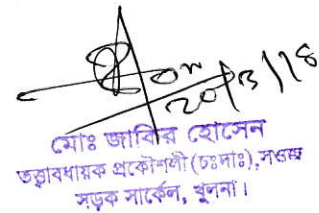 20/3/18
মোঃ জাকির হোসেন
তত্ত্বাবধায়ক প্রকৌশলী (চঃদাঃ), সওজ
সড়ক সার্কেল, খুলনা।